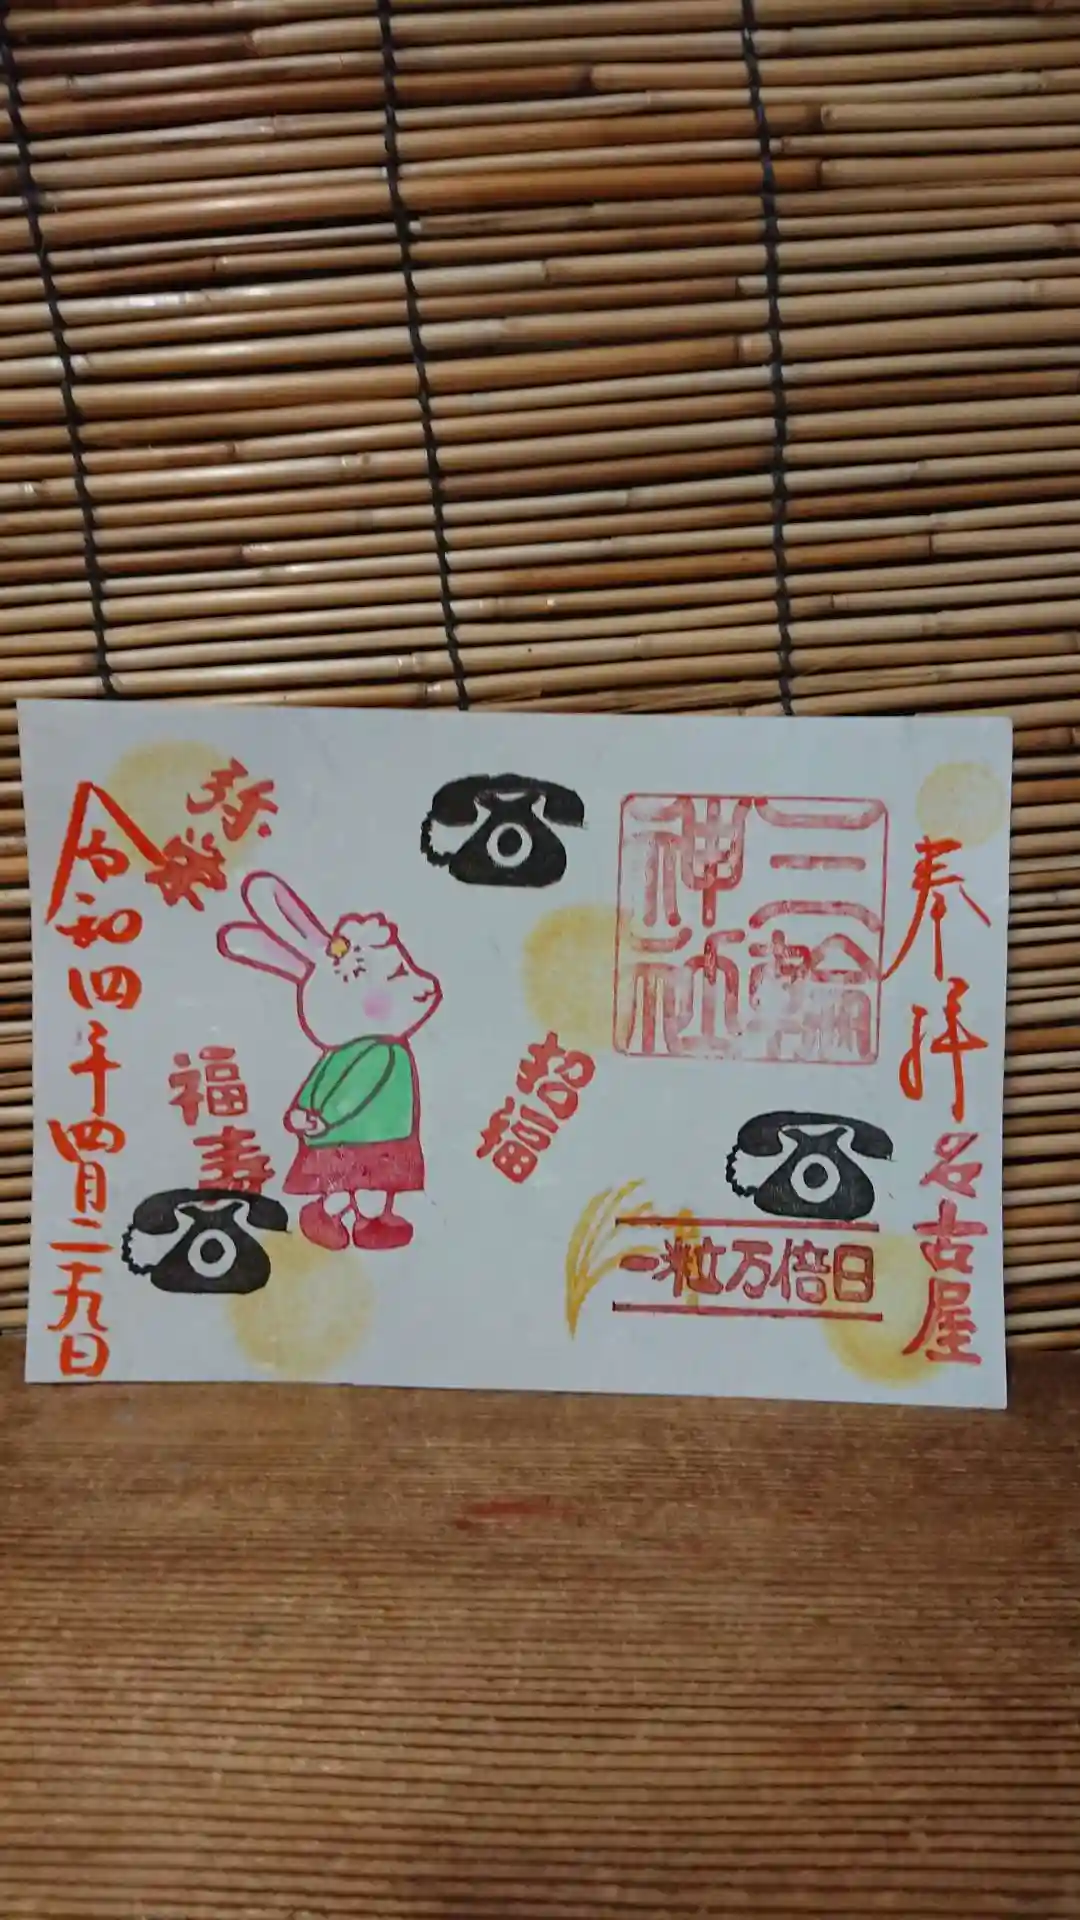 奉拝
名古屋
三輪
神社
一粒万倍日
招福
弥栄
福寿
令和四年四月二十九日